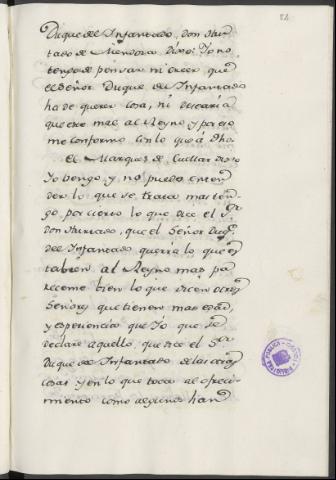 82
Duque del Infantado, don Hur
tado de Mendoza dixo: Yo no
tengo de pensar ni creer que
el Señor Duque del Infantado
ha de querer cosa, ni desearia
que este mal al Reyno y por eso
me conformo con lo que á dho.
El Marques de Cuellar dixo
Yo bengo, y no puedo enten
der lo que se trata mas ten
go por cierto lo que dice el Sr.
don Hurtado, que el Señor Duq.
del Infantado querria lo que es
tabien al Reyno mas pa
receme bien lo que dicen otros
Señores que tienen mas edad,
y esperiencia que Yo que se
declare aquello, que dice el Sr.
Duque del Infantado de las otras
cosas y en lo que toca al ofreci
miento como algunos han